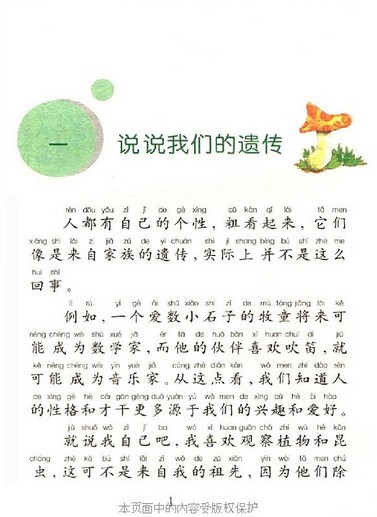 一
说说我们的遗传
rén dōu yǒu zì jǐ de gè xìng cū kàn qǐ lái tā men
人都有自己的个性，粗看起来，它们
xiàng shì lái zì jiā zú de yí chuán shí jì shang bìng bú shì zhè me
像是来自家族的遗传，实际上并不是这么
huí shì
回事。
lì rú yí gè ài shǔ xiǎo shí zǐ de mù tóng jiāng lái kě
例如，一个爱数小石子的牧童将来可
néng chéng wéi shù xué jiā ér tā de huǒ bàn xǐ huan chuī dí jiù
能成为数学家，而他的伙伴喜欢吹笛，就
kě néng chéng wéi yīn yuè jiā cóng zhè diǎn kàn wǒ men zhī dào rén
可能成为音乐家。从这点看，我们知道人
de xìng gé hé cái gàn gèng duō yuán yú wǒ men de xìng qù hé ài hào
的性格和才干更多源于我们的兴趣和爱好。
jiù shuō wǒ zì jǐ ba wǒ xǐ huan guān chá zhí wù hé kūn
就说我自己吧，我喜欢观察植物和昆
chóng zhè kě bú shì lái zì wǒ de zǔ xiān yīn wèi tā men chú
虫，这可不是来自我的祖先，因为他们除
1
本页面中的内容受版权保护